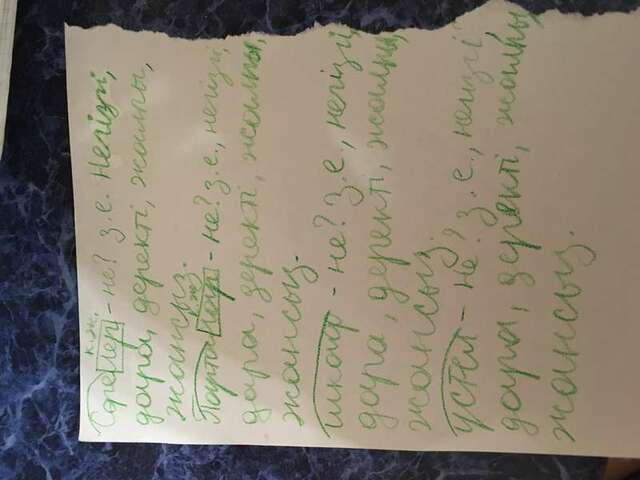 к.ж.
Терелер - не? З.е. Негізгі,
дара, деректі, жалпы,
жансыз.
к.ж.
Парталар - не? З.е., негізгі,
дара, деректі, жалпы,
жансыз.
шкаф - не? З.е., негізгі
дара, деректі, жалпы,
жансыз.
үстел - не? З.е., негізгі,
дара, деректі, жалпы,
жансыз.